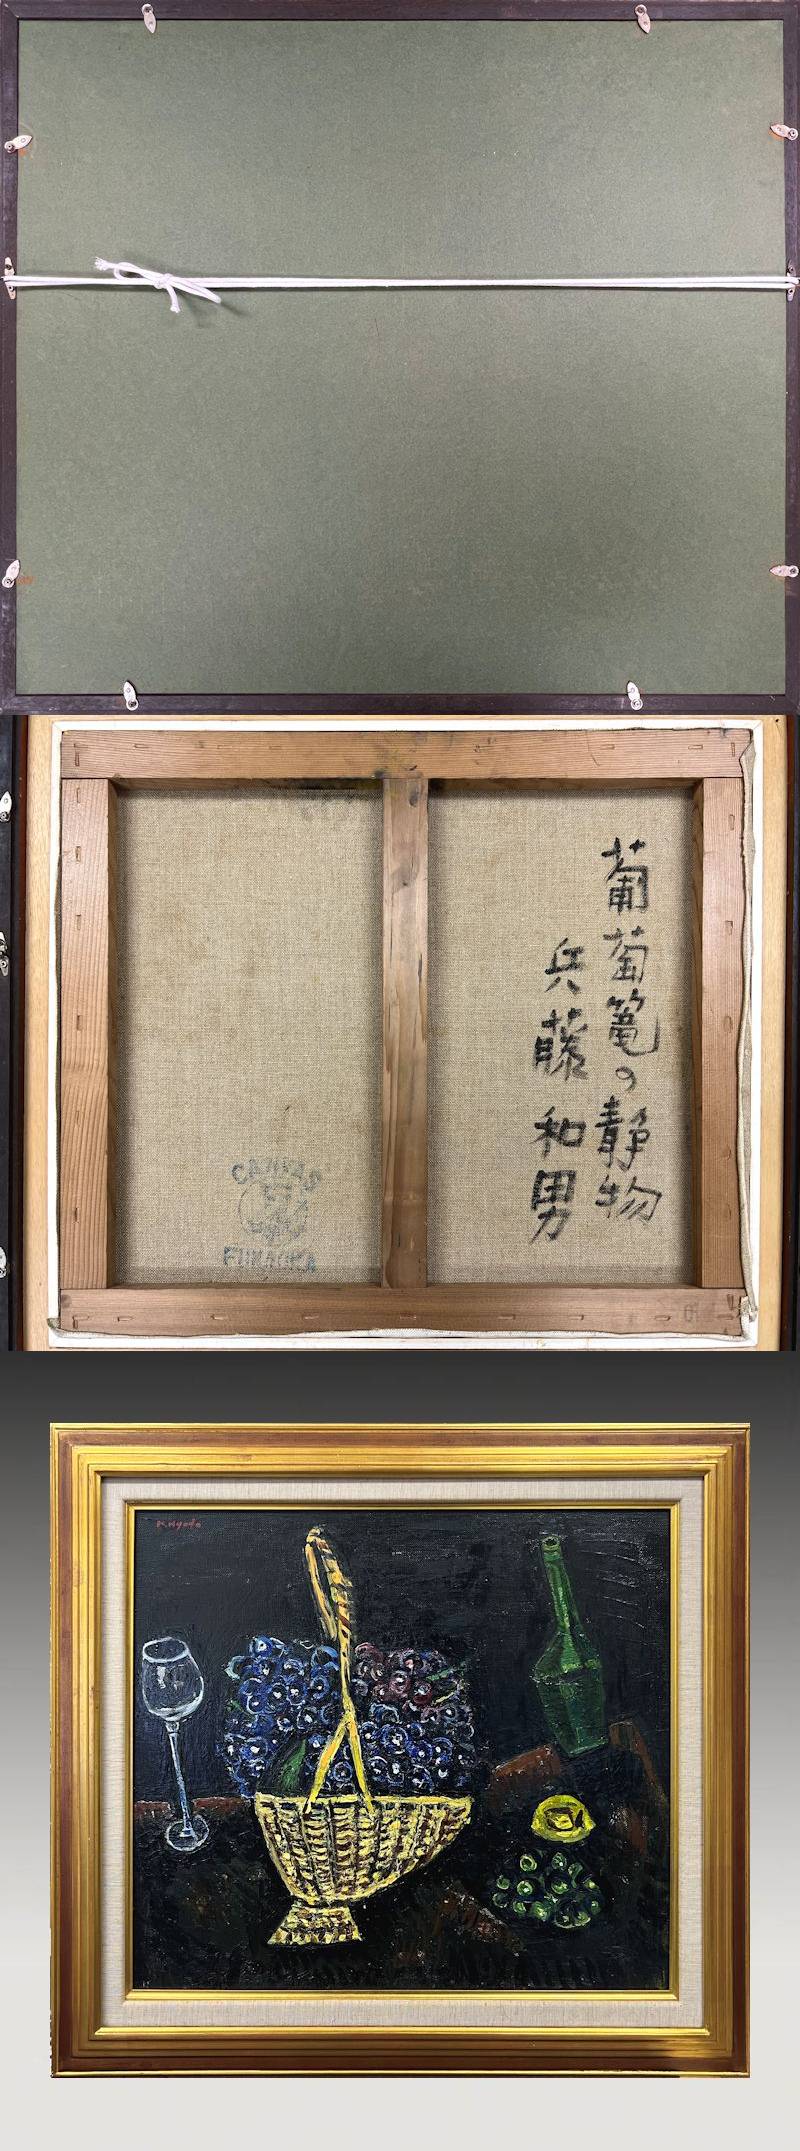 葡萄篭の静物
兵藤和男
CANVAS
FUKAOKA
K Hyodo